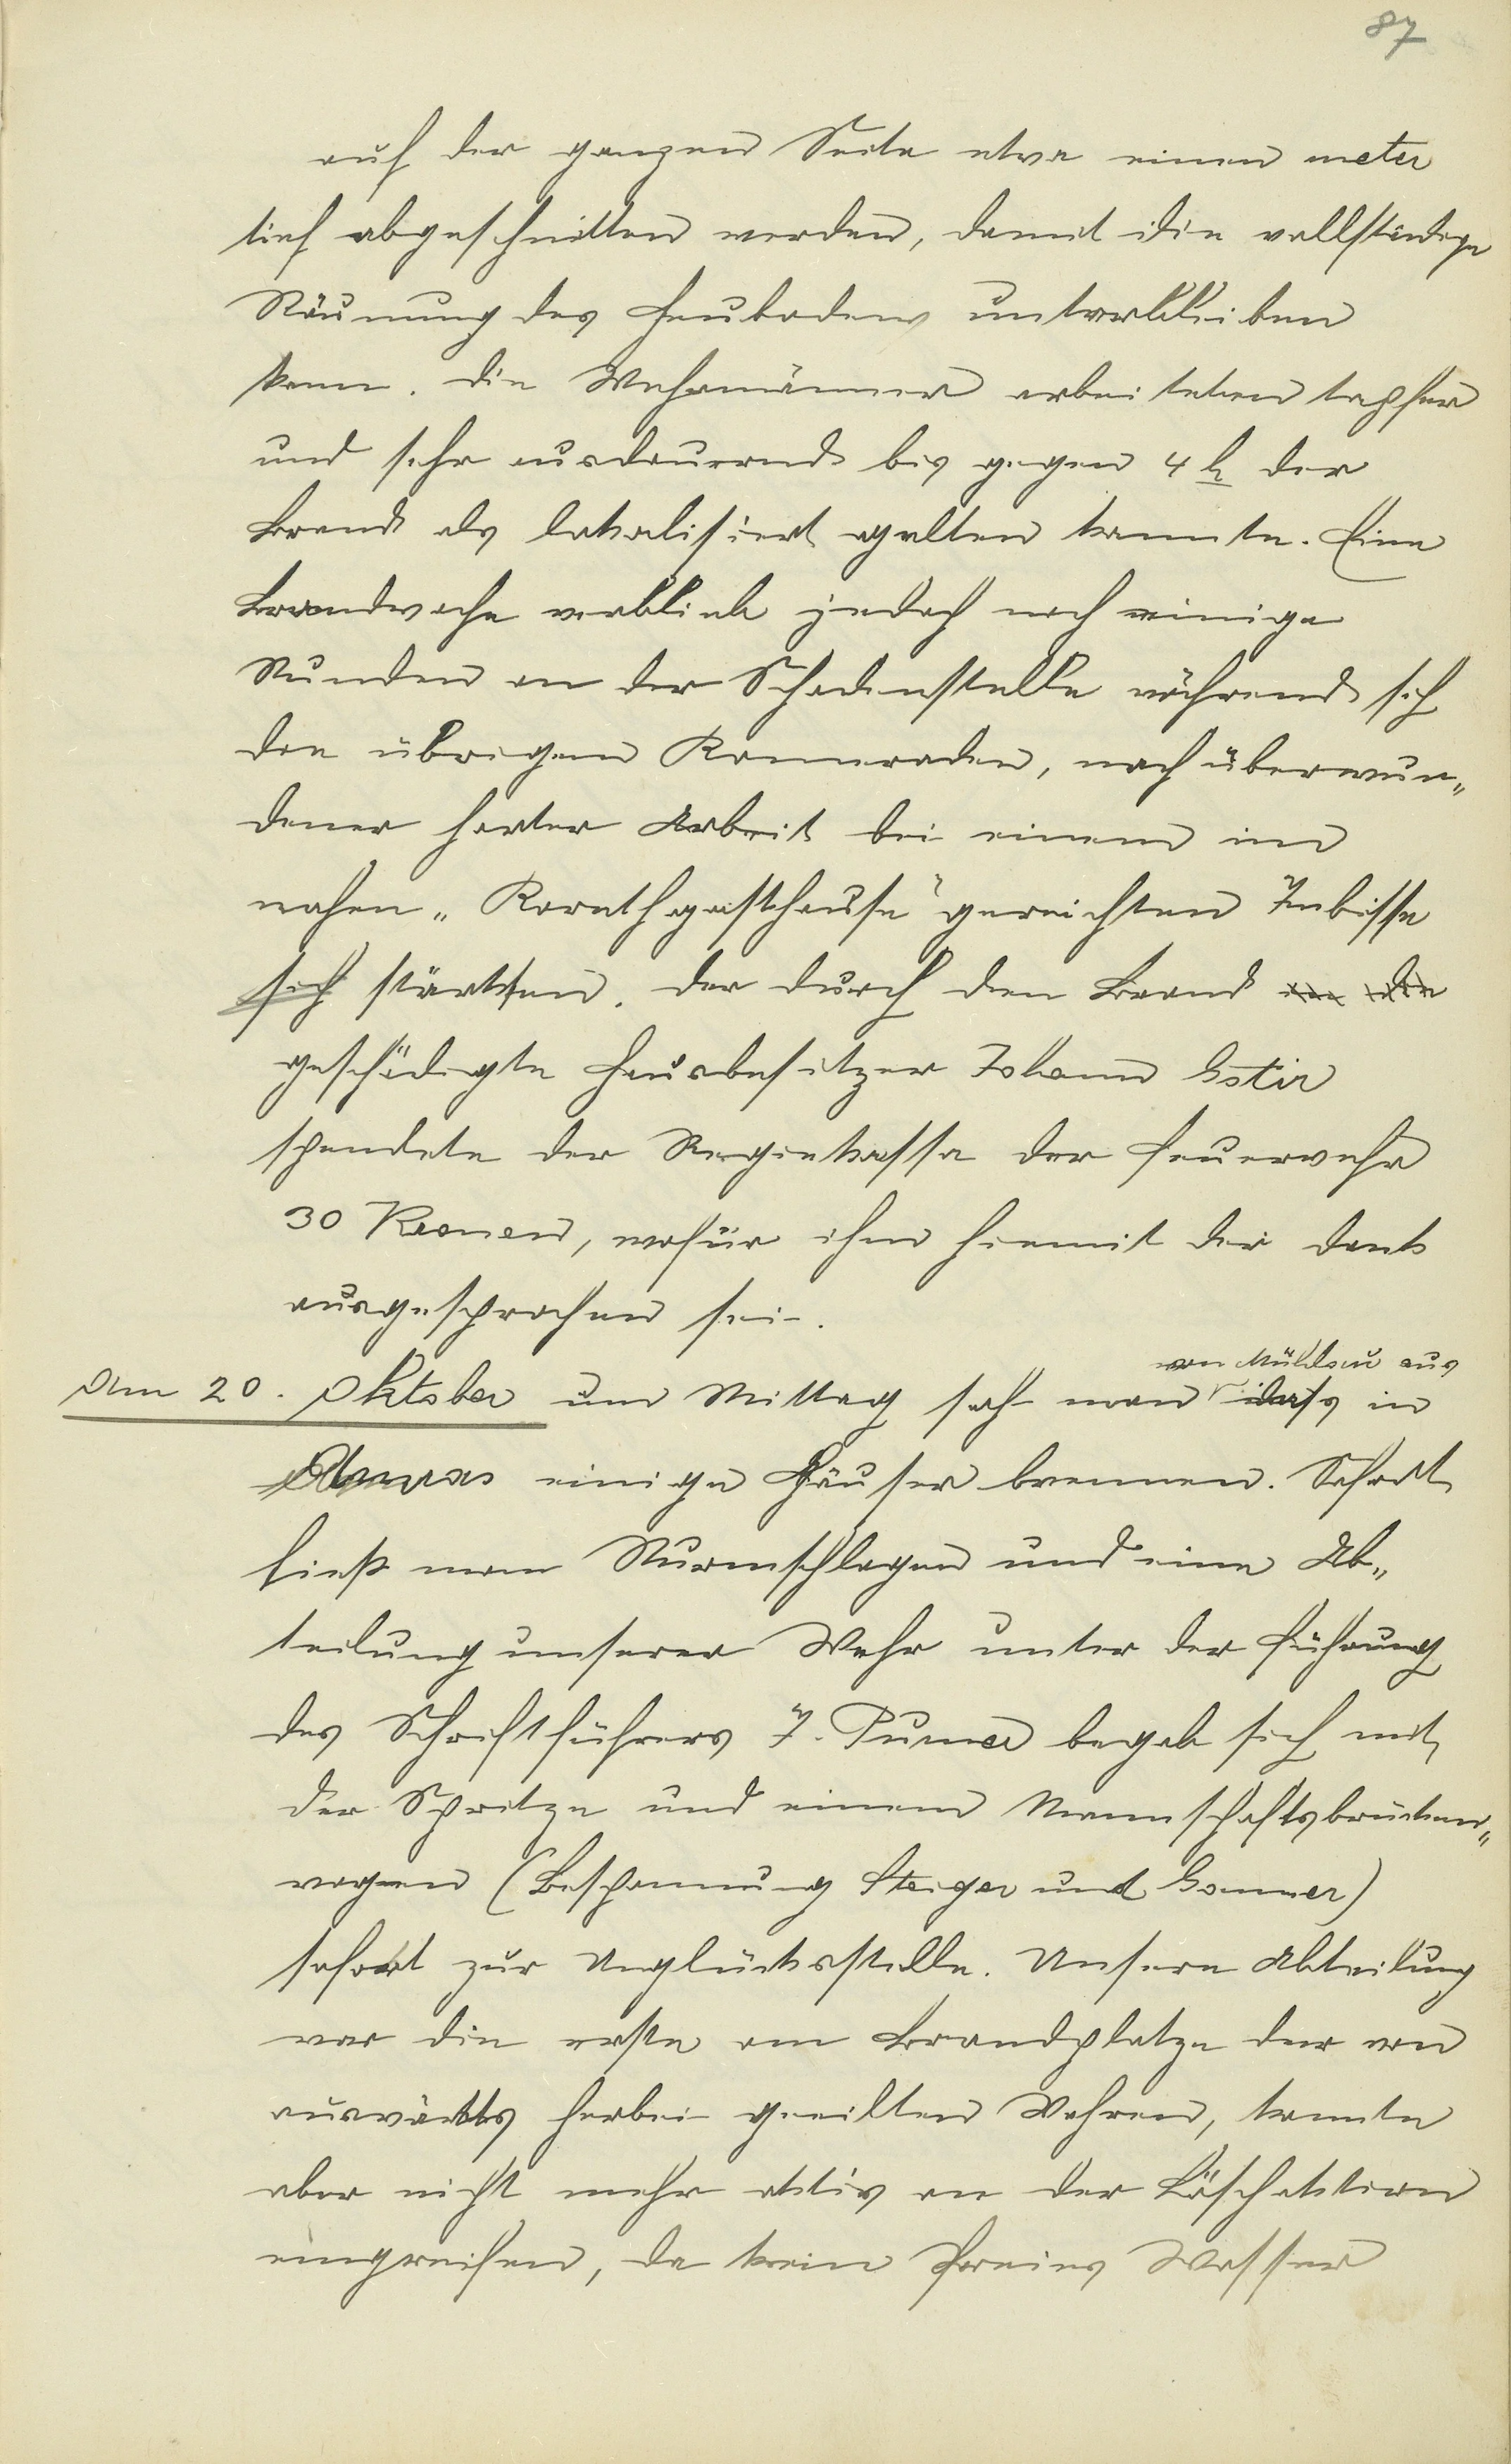 87
auf der ganzen Seite etwa einen meter
tief abgeschnitten werden, damit die vollständige
Räumung des Heubodens unterbleiben
kann. Die Wehrmänner arbeiteten tapfer
und sehr ausdauernd bis gegen 4 h der
Brand als lokalisiert gelten konnte. Eine
Brandwache verblieb jedoch noch einige
Stunden an der Schadenstelle während sich
die übrigen Kameraden, nach überwun„
dener harter Arbeit bei einem im
nahen „Korathgasthause" gereichten Imbisse
sich stärkten. Der durch den Brand
geschädigte Hausbesitzer Johann Gstir
spendete der Regiekassa der Feuerwehr
30 Kronen, wofür ihm hiemit der Dank
ausgesprochen sei.
von Mühlau aus
Am 20. Oktober um Mittag sah man dass in
einige Häuser brennen. Sofort
ließ man Sturmschlagen und eine Ab„
teilung unserer Wehr unter der Führung
des Schriftführers J. Purner begab sich mit
der Spritze und einem Mannschaftsbrücken„
wagen (Bespannung Steiger und Sommer)
sofort zur Unglücksstelle. Unsere Abteilung
war die erste am Brandplatze der von
auswärts herbei geeilten Wehren, konnte
aber nicht mehr aktiv an der Löschaktion
eingreifen, da kein freies Wasser